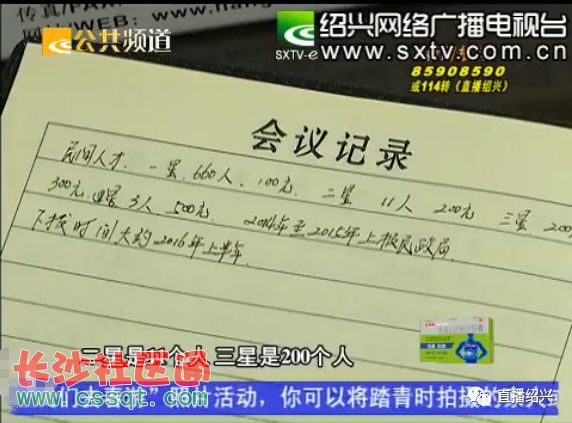 传真/FAX
网址/WEB: www.hang
公共频道
绍兴网络广播电视台
SXTV-e
www.sxtv.com.cn
85908590
或114转《直播绍兴》
会议记录
民间人才: 一星 660人、100元 二星 11人 200元 三星 200
300元 四星 3人 500元 2014年至2015年上报民政局
下拨时间大约2016年上半年
二星是11个人 三星是200个人
长沙社区通
www.cssqt.com
照片活动，你可以将踏青时拍摄的
直播绍兴